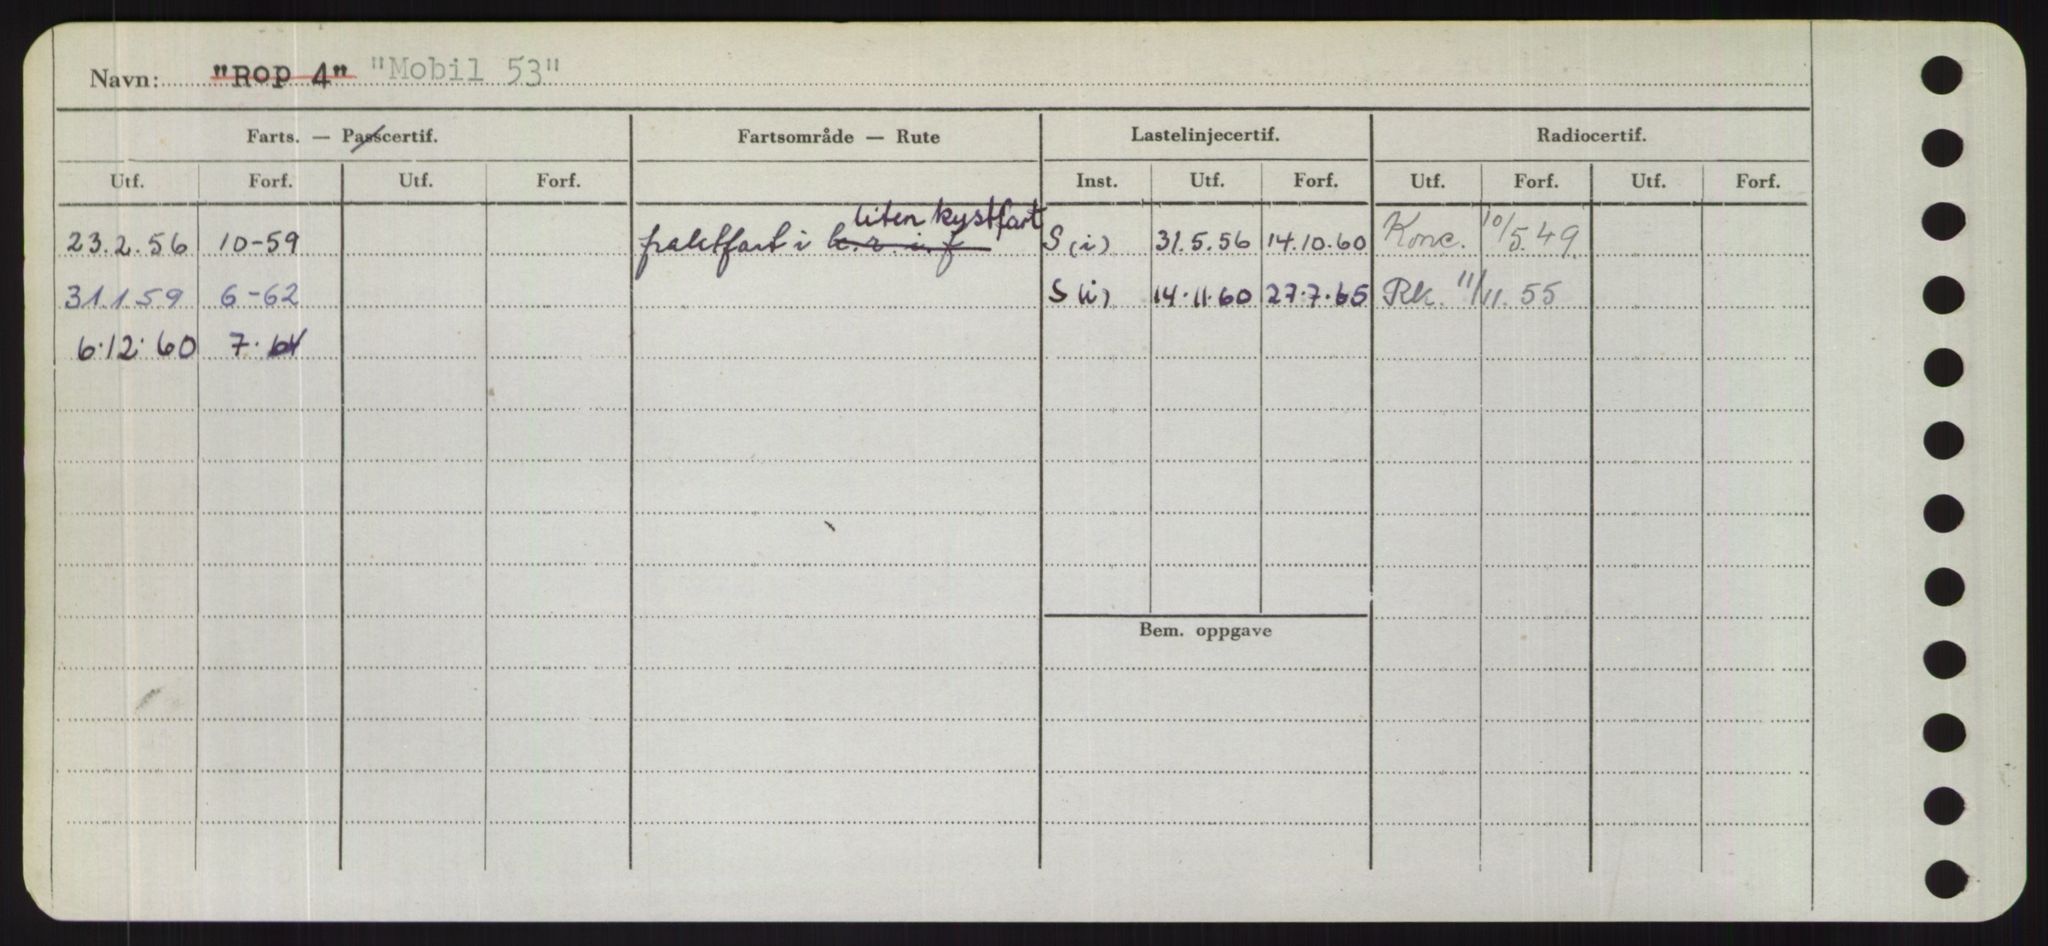 Navn: "Rop 4" "Mobil 53"
Farts. — Passcertif. Fartsområde — Rute Lastelinjecertif. Radiocertif.
Utf. Forf. Utf. Forf. Inst. Utf. Forf. Utf. Forf. Utf. Forf.
liten kystfart
23.2.56 10-59 fraktfart i k.r.i.f S(i) 31.5.56 14.10.60 Konc. 10/5.49
31.1.59 6-62 S(i) 14.11.60 27.7.65 Rk. 11/11.55
6.12.60 7.64
Bem. oppgave